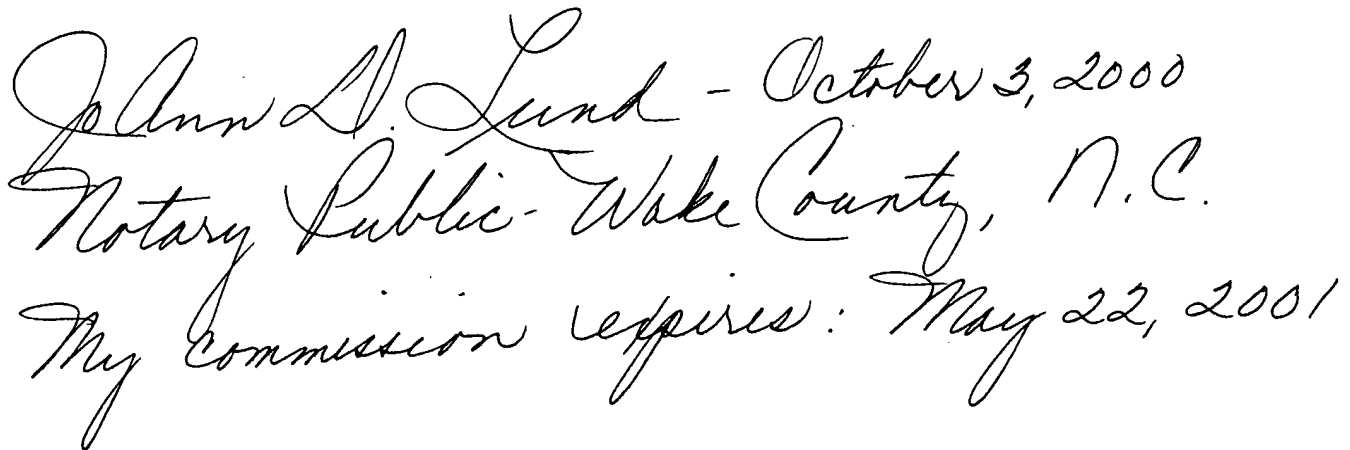 JoAnn D. Lund - October 3, 2000
Notary Public - Wake County, N.C.
My commission expires: May 22, 2001